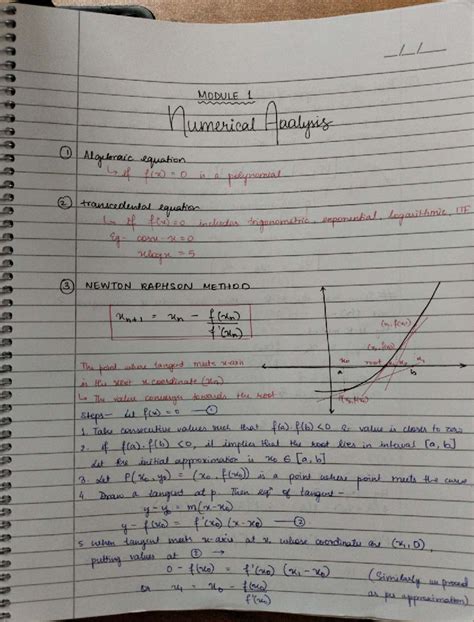 _/_/_
MODULE 1
Numerical Analysis
① Algebraic equation
↳ If f(x) = 0 is a polynomial
② transcedental equation
↳ If f(x)=0 includes trigonometric, exponential, logarithmic, ITF
Eg- cosx - x = 0
xlogx = 5
③ NEWTON RAPHSON METHOD
xn+1 = xn - f(xn)/f'(xn)
The point where tangent meets x-axis
is the root x-coordinate (xn)
↳ The value converges towards the root
a x0 root x2 x1 b
Steps- Let f(x) = 0 — ①
1. Take consecutive values such that f(a).f(b) < 0 & value is closer to zero
2. if f(a).f(b) < 0, it implies that the root lies in interval [a, b]
Let the initial approximation is x0 ∈ [a, b]
3. Let P(x0, y0) = (x0, f(x0)) is a point where point meets the curve
4 Draw a tangent at p. Then eqn of tangent -
y - y0 = m(x - x0)
y - f(x0) = f'(x0) (x - x0) — ②
5 when tangent meets x-axis at x, whose coordinate are (x1, 0),
putting values at ② →
0 - f(x0) = f'(x0) (x1 - x0)
or x1 = x0 - f(x0)/f'(x0)
(Similarly we proceed
as per approximation)